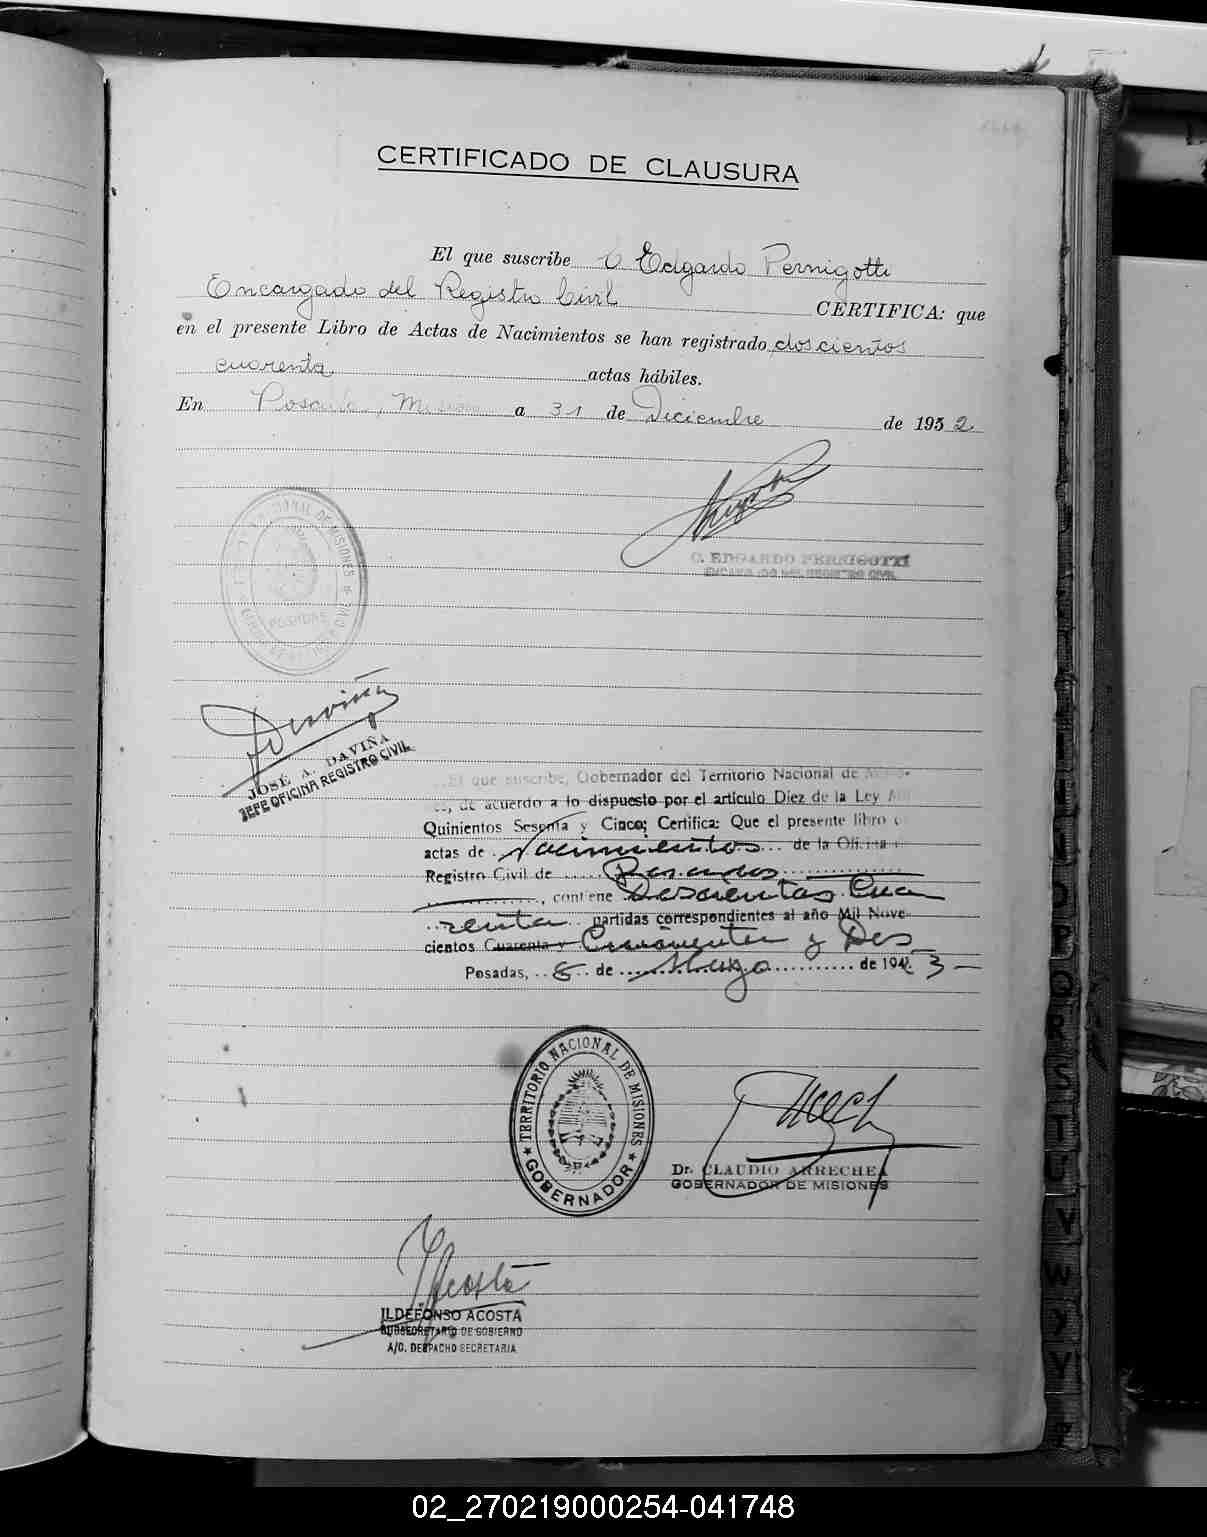 CERTIFICADO DE CLAUSURA
El que suscribe C Edgardo Pernigotti
Encargado del Registro Civil CERTIFICA: que
en el presente Libro de Actas de Nacimientos se han registrado doscientos
cuarenta actas hábiles.
En Posadas, Misiones a 31 de Diciembre de 1952
TERRITORIO NACIONAL DE MISIONES
POSADAS
C. EDGARDO PERNIGOTTI
ENCARGADO DEL REGISTRO CIVIL
Daviña
JOSÉ A. DAVIÑA
JEFE OFICINA REGISTRO CIVIL
El que suscribe, Gobernador del Territorio Nacional de Misio-
es, de acuerdo a lo dispuesto por el artículo Diez de la Ley Mil
Quinientos Sesenta y Cinco; Certifica: Que el presente libro
actas de Nacimientos de la Oficina
Registro Civil de Posadas
, contiene Doscientas Cua
renta partidas correspondientes al año Mil Nove-
cientos Cuarenta y Cincuenta y Dos
Posadas, 8 de Mayo de 194 3
TERRITORIO NACIONAL DE MISIONES
GOBERNADOR
Dr. CLAUDIO ARRECHEA
GOBERNADOR DE MISIONES
Acosta
ILDEFONSO ACOSTA
SUBSECRETARIO DE GOBIERNO
A/C. DESPACHO SECRETARIA
02_270219000254-041748